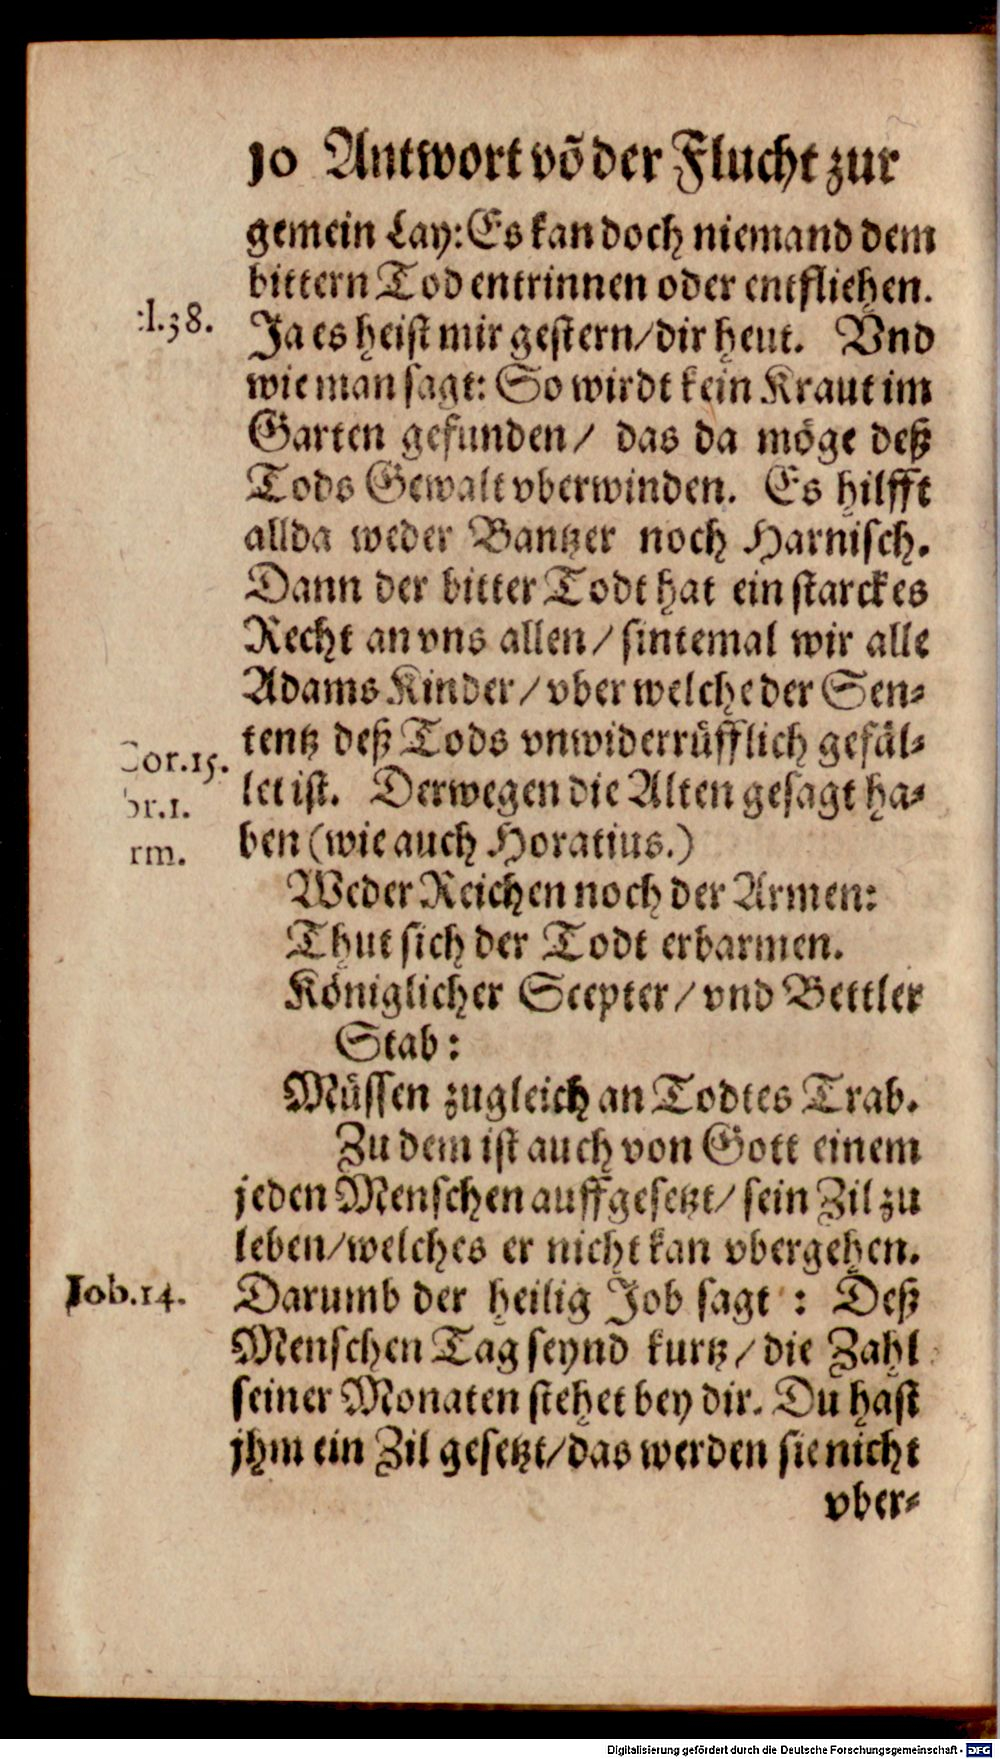 10 Antwort võ der Flucht zur
gemein Lay: Es kan doch niemand dem
bittern Tod entrinnen oder entfliehen.
:l.38.
Ja es heist mir gestern/dir heut. Vnd
wie man sagt: So wirdt kein Kraut im
Garten gefunden/ das da möge deß
Tods Gewalt vberwinden. Es hilfft
allda weder Bantzer noch Harnisch.
Dann der bitter Todt hat ein starckes
Recht an vns allen/ sintemal wir alle
Adams Kinder/ vber welche der Sen-
Cor.15.
tentz deß Tods vnwiderrüfflich gefäl-
br.1.
let ist. Derwegen die Alten gesagt ha-
rm.
ben (wie auch Horatius.)
Weder Reichen noch der Armen:
Thut sich der Todt erbarmen.
Königlicher Scepter/ vnd Bettler
Stab:
Müssen zugleich an Todtes Trab.
Zu dem ist auch von Gott einem
jeden Menschen auffgesetzt/ sein Zil zu
leben/welches er nicht kan vbergehen.
Job.14.
Darumb der heilig Job sagt : Deß
Menschen Tag seynd kurtz/ die Zahl
seiner Monaten stehet bey dir. Du hast
jhm ein Zil gesetzt/das werden sie nicht
vber-
Digitalisierung gefördert durch die Deutsche Forschungsgemeinschaft - DFG